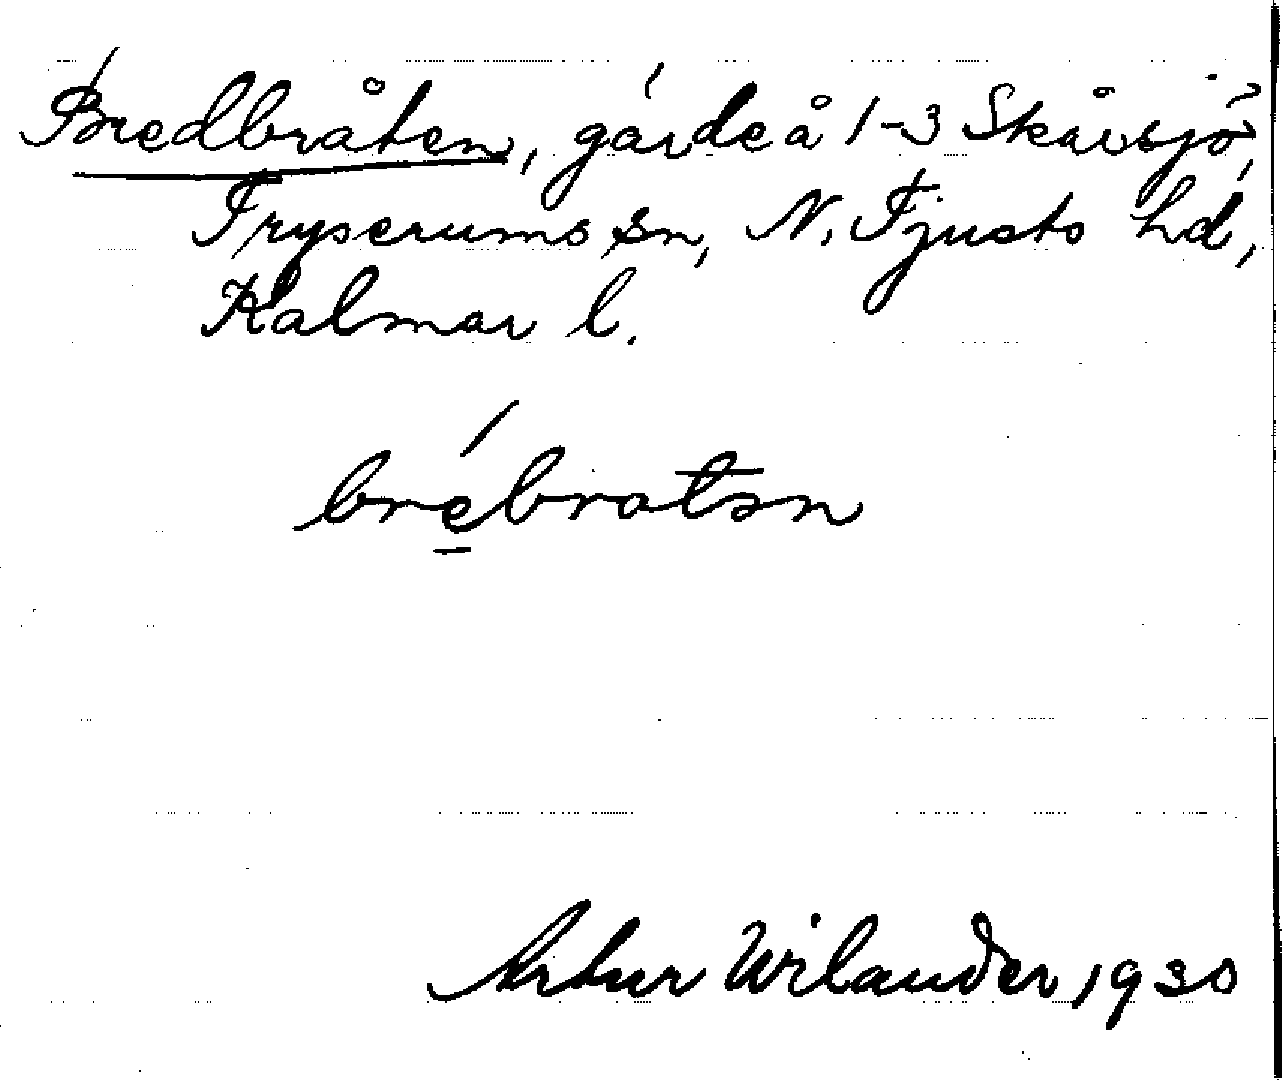 Bredbråten, gärde å 1-3 Skårsjö,
Tryserums sn, N. Tjusts hd,
Kalmar l.
brèbrotən
Artur Wilander 1930